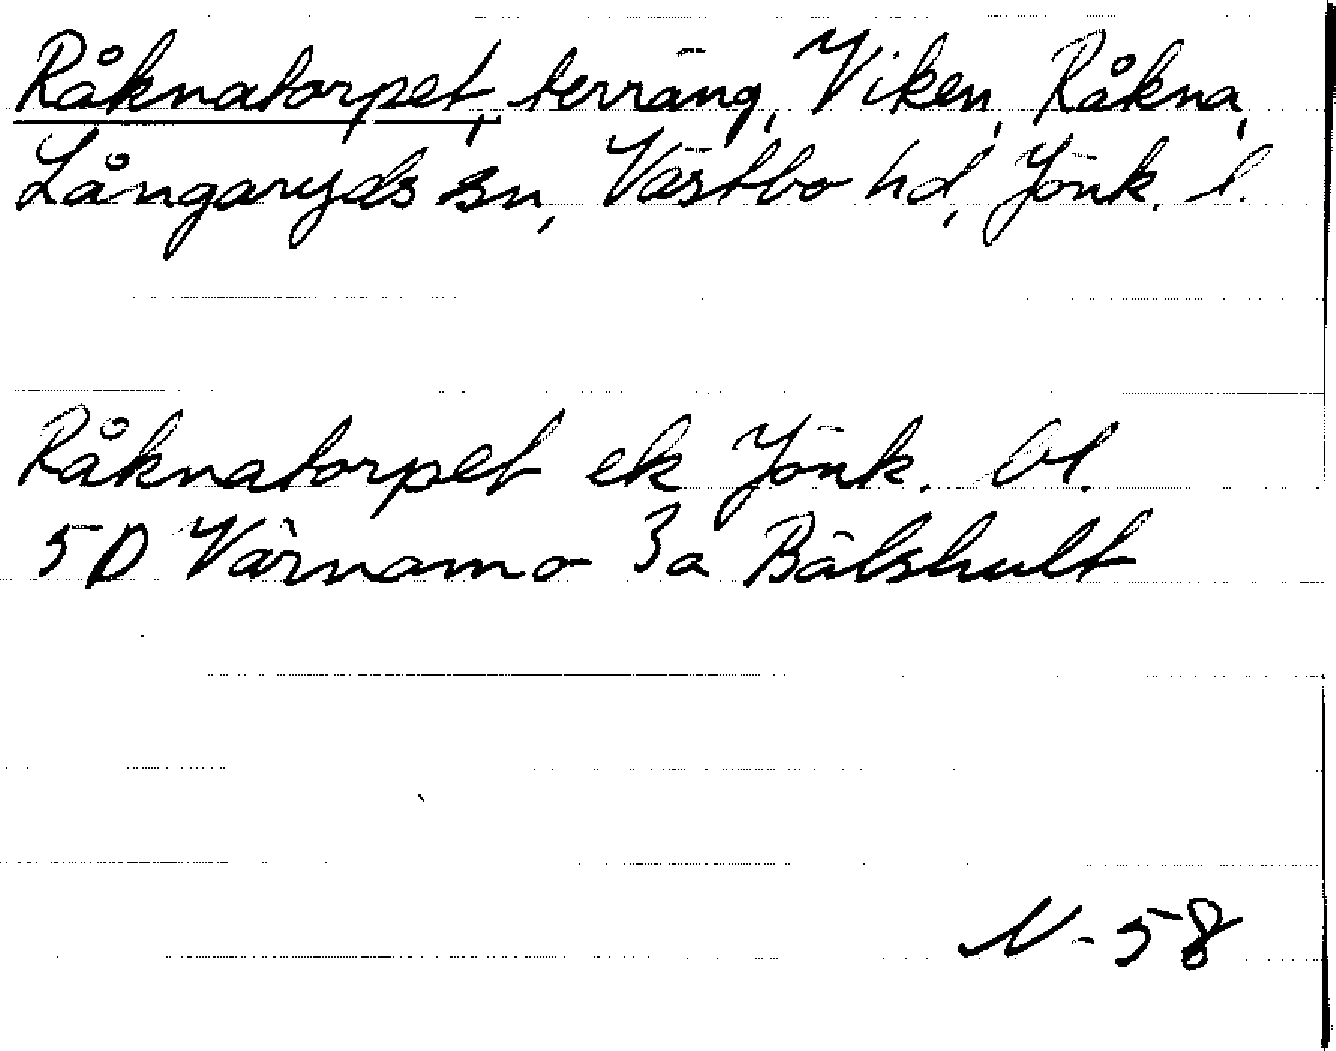 Råknatorpet, terräng, Viken, Råkna,
Långaryds sn, Västbo hd, Jönk. l.
Råknatorpet ek Jönk. bl.
5D Värnamo 3a Bälshult
N-58